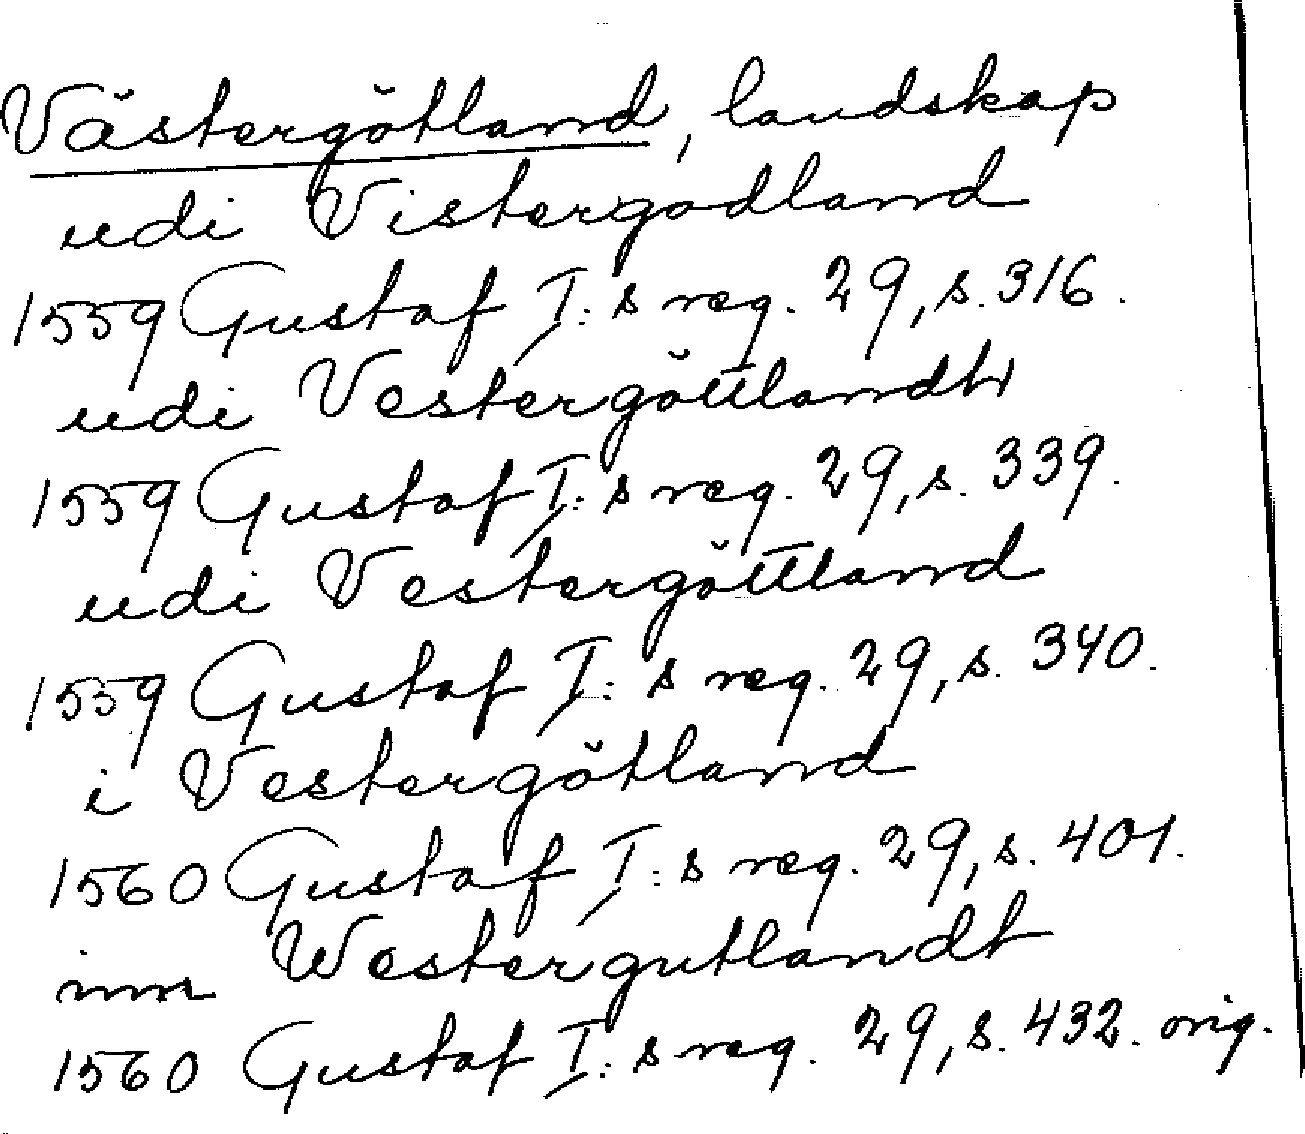 Västergötland, landskap
udi Vistergodland
1559 Gustaf I:s reg. 29, s. 316.
udi Vestergöttlandh
1559 Gustaf I:s reg. 29, s. 339.
udi Vestergöttland
1559 Gustaf I:s reg. 29, s. 340.
i Vestergötland
1560 Gustaf I:s reg. 29, s. 401.
inn Westergutlandt
1560 Gustaf I:s reg. 29, s. 432. orig.